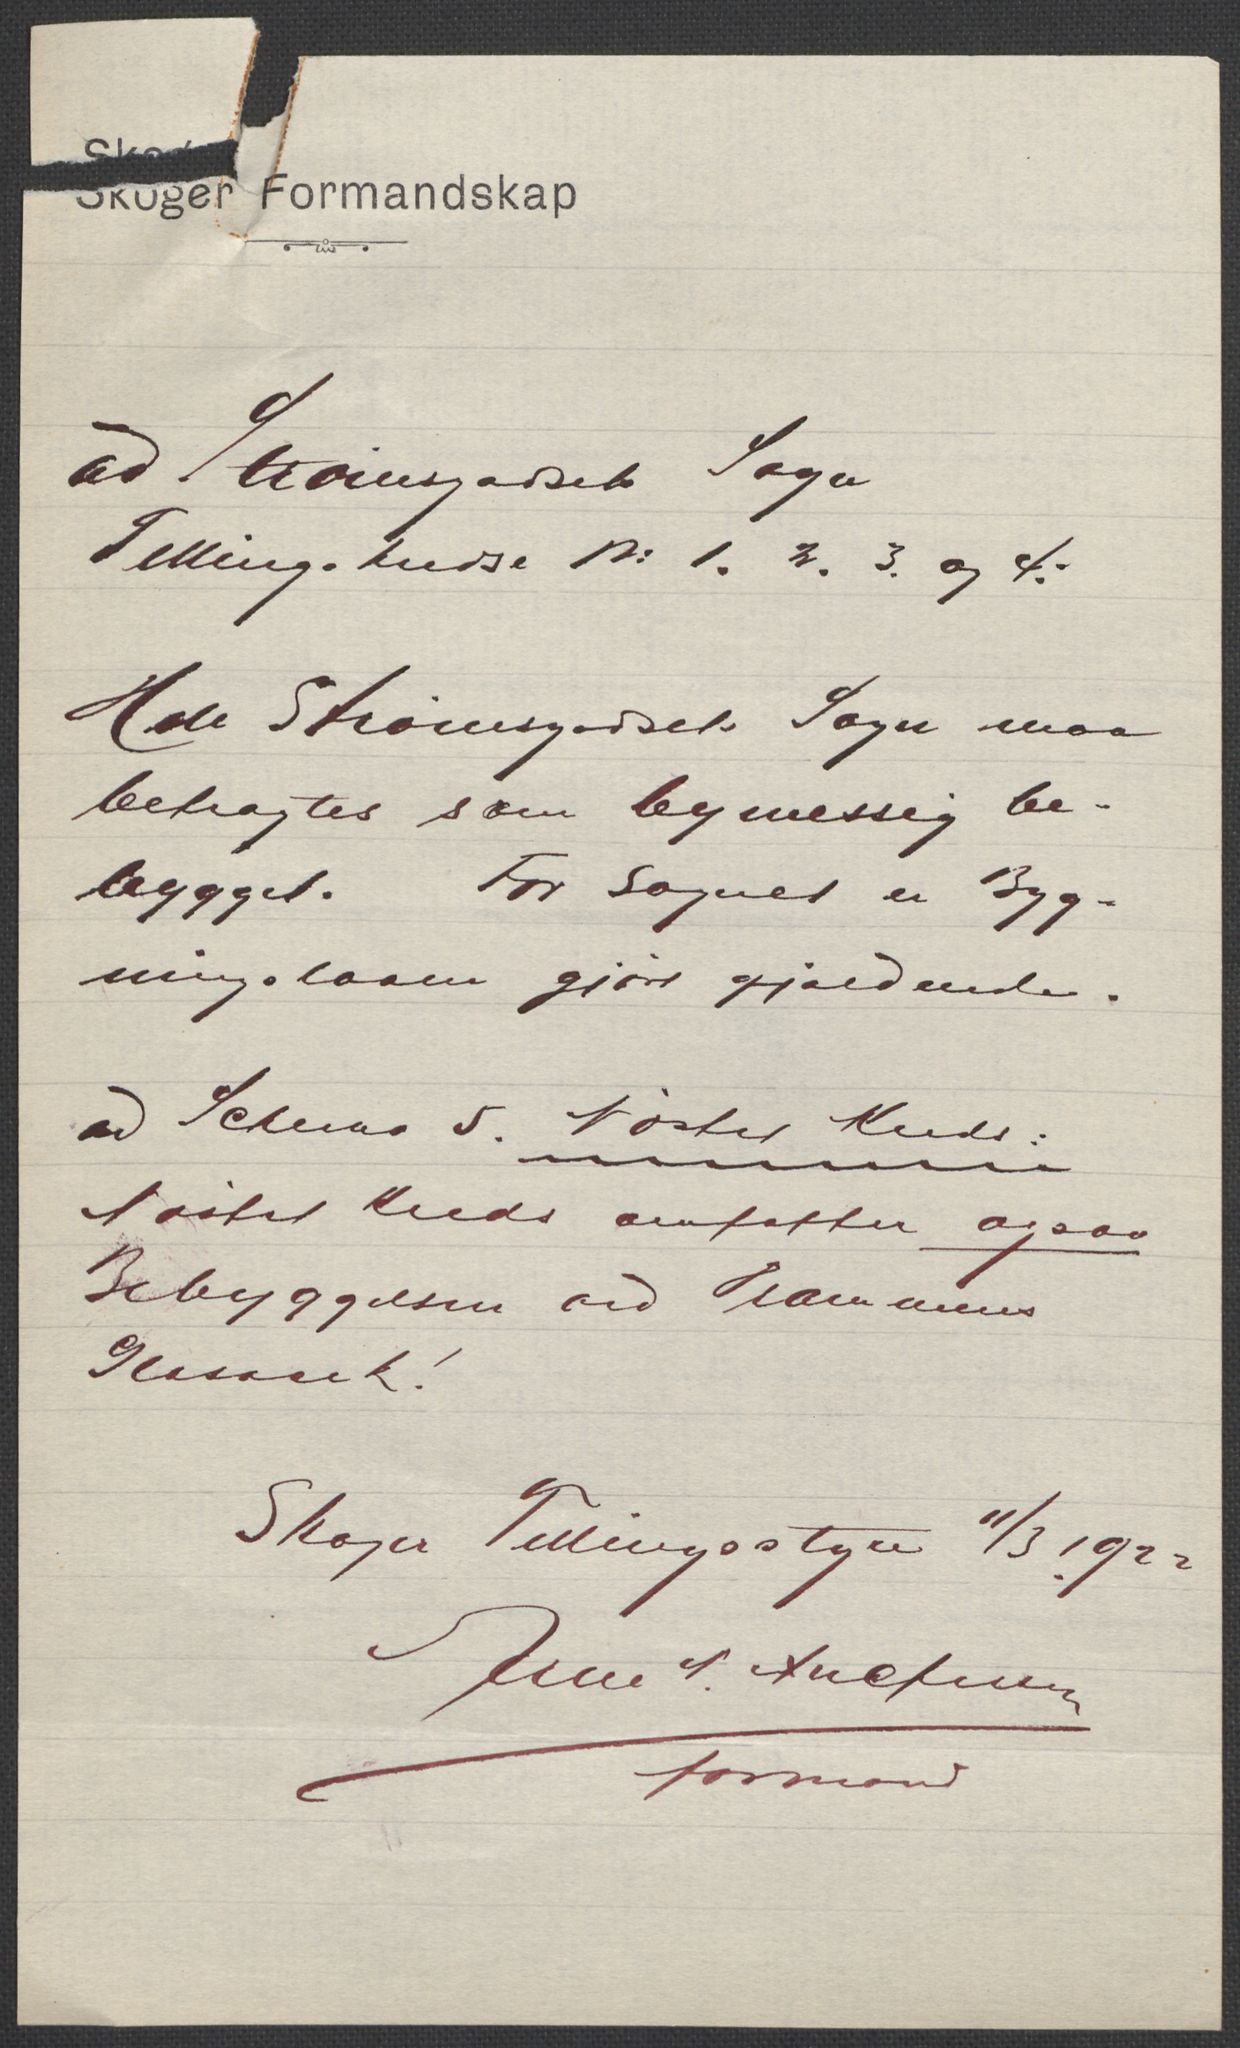 Skoger Formandskap
ad Strømsgodset Sogn
Tellingskredse Nr 1. 2. 3. og 4.
Hele Strømsgodset Sogn maa
betragtes som bymessig be-
bygget. For Sognet er Byg-
ningsloven gjort gjældende.
ad Schema 5. Nøstet Kreds:
Nøstet Kreds omfatter ogsaa
Bebyggelsen ved Drammens
Glasverk!
Skoger Tellingsstyre 11/3 1922
Arne Andersen
formand